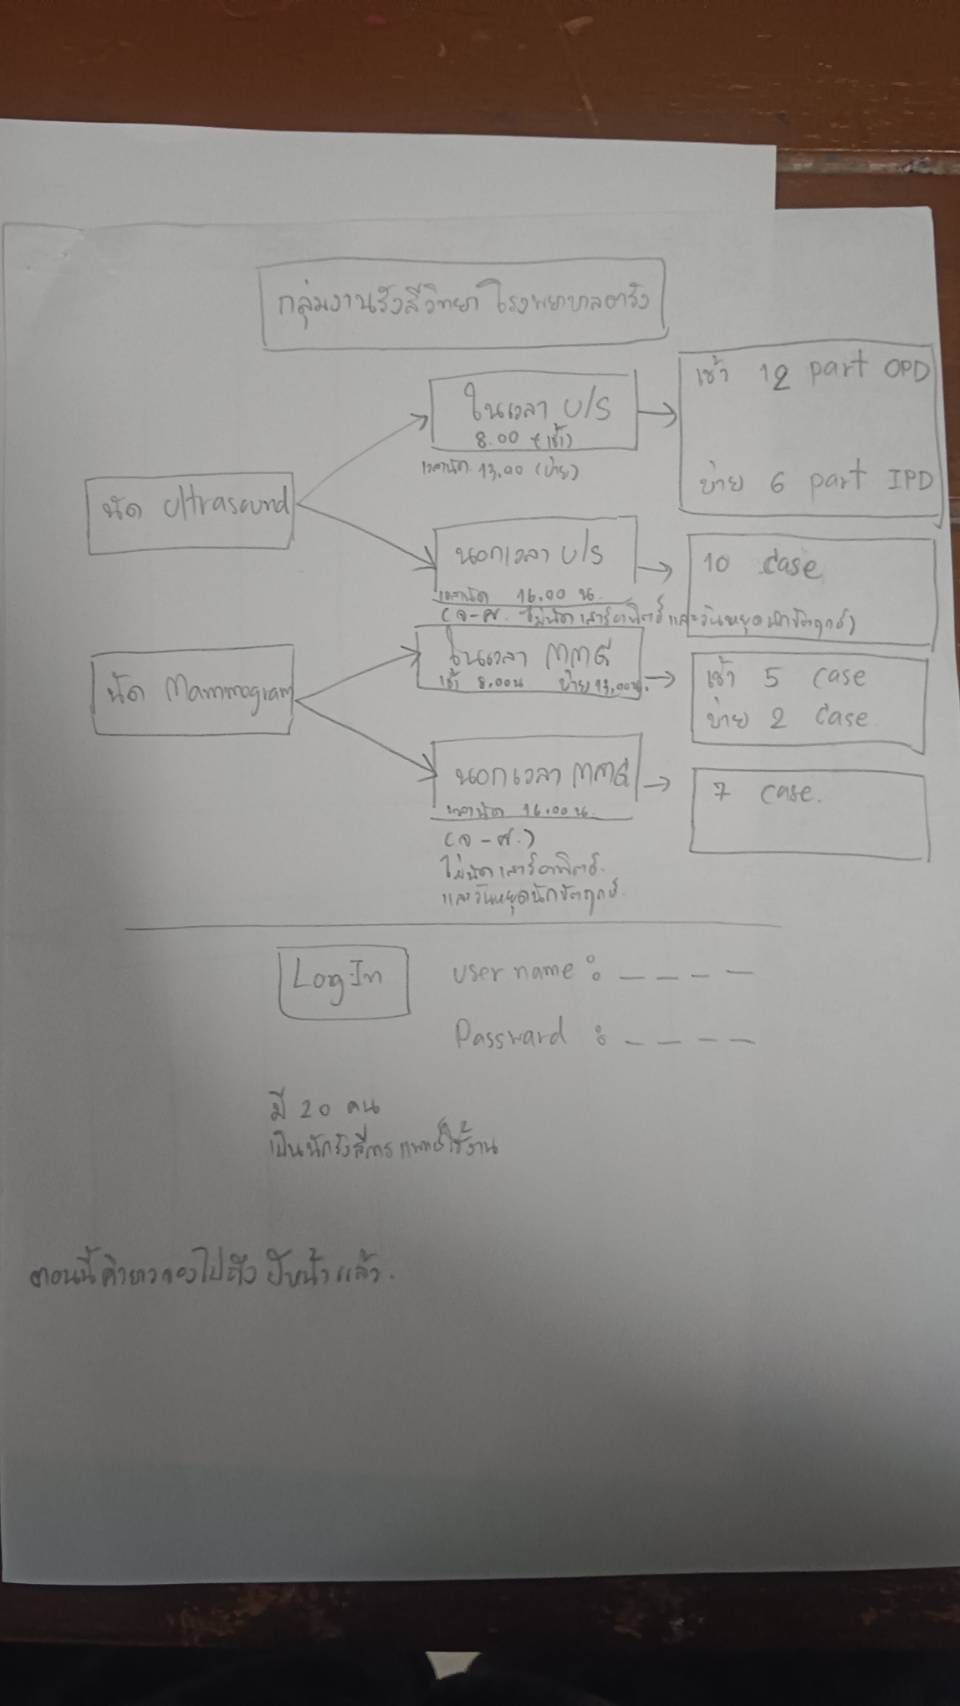 กลุ่มงานรังสีวิทยา โรงพยาบาลตรัง
นัด Ultrasound
ในเวลา U/S
8.00 (เช้า)
เวลานัด 13.00 (บ่าย)
เช้า 12 part OPD
บ่าย 6 part IPD
นอกเวลา U/S
เวลานัด 16.00 น.
(จ-ศ. ไม่นัดเสาร์อาทิตย์และวันหยุดนักขัตฤกษ์)
10 case
นัด Mammogram
ในเวลา MMG
เช้า 8.00น บ่าย 13.00น.
เช้า 5 case
บ่าย 2 case
นอกเวลา MMG
เวลานัด 16.00 น.
(จ-ศ.)
ไม่นัดเสาร์อาทิตย์
และวันหยุดนักขัตฤกษ์
7 case.
Log In
user name : _ _ _ _
Password : _ _ _ _
มี 20 คน
เป็นนักรังสีการแพทย์ใช้งาน
ตอนนี้คิวยาวจองไปถึงปีหน้าแล้ว.